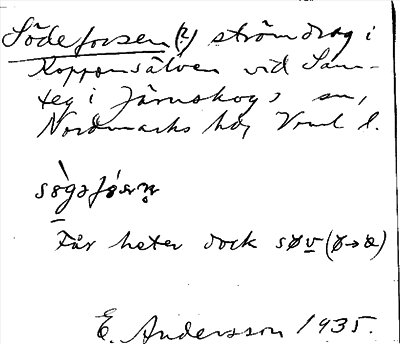 Södeforsen (?) strömdrag i
Koppomsälven vid Sam-
teg i Järnskogs sn,
Nordmarks hd, Vrml l.
Får heter dock søv (ø→œ)
E. Andersson 1935.